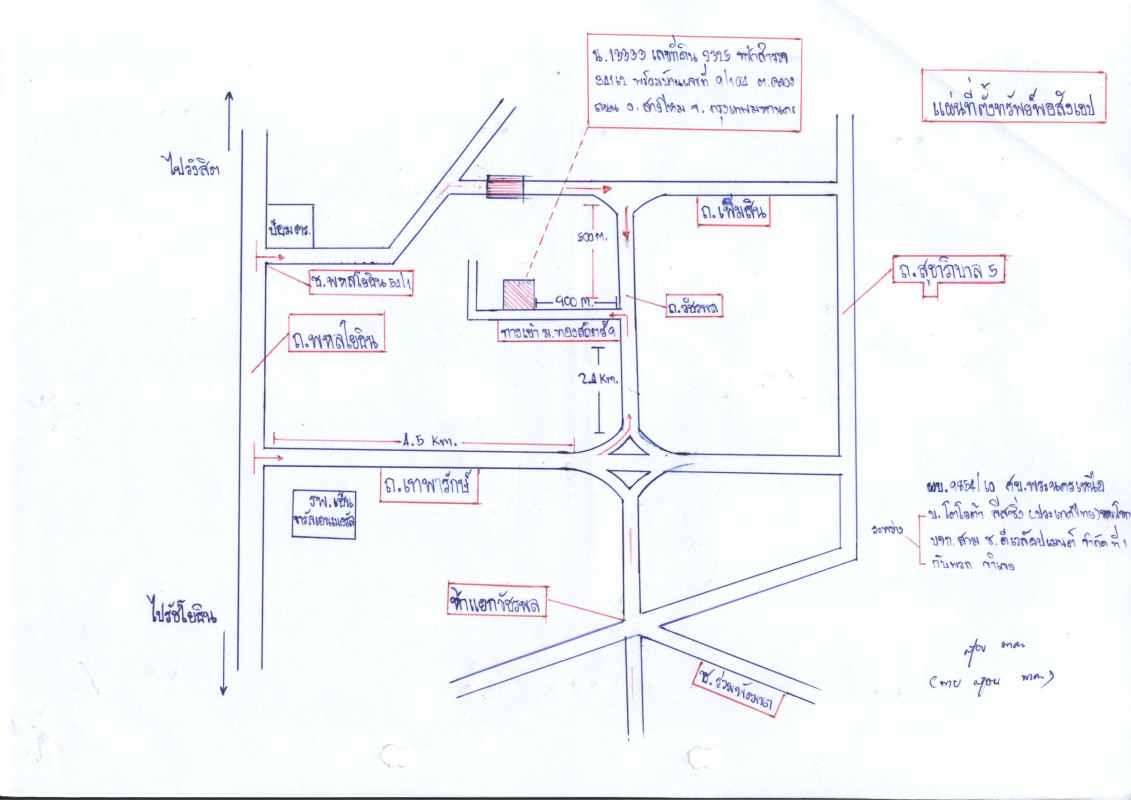 น.13933 เลขที่ดิน 2325 หน้าสำรวจ
34162 พร้อมบ้านเลขที่ 9/104 ต.คลอง
ถนน อ. สายไหม จ. กรุงเทพมหานคร
แผนที่ตั้งทรัพย์พอสังเขป
ไปรังสิต
ป้อมตร.
ถ.เพิ่มสิน
500 m.
ถ.สุขาภิบาล 5
ซ.พหลโยธิน 54/1
400 m.
ถ.วัชรพล
ทางเข้า ม.ทองสถิตย์ 9
ถ.พหลโยธิน
2.4 Km.
4.5 Km.
ถ.เทพารักษ์
รพ.เซ็น
ทรัลเยนเนอรัล
ระหว่าง
บ. โตโยต้า ลีสซิ่ง (ประเทศไทย)
บจก. สาม ช. ดีเวล็อปเมนต์ จำกัด ที่ 1
กับพวก จำเลย
ห้าแยกวัชรพล
ไปรัชโยธิน
ซ. ร่วมพัฒนา